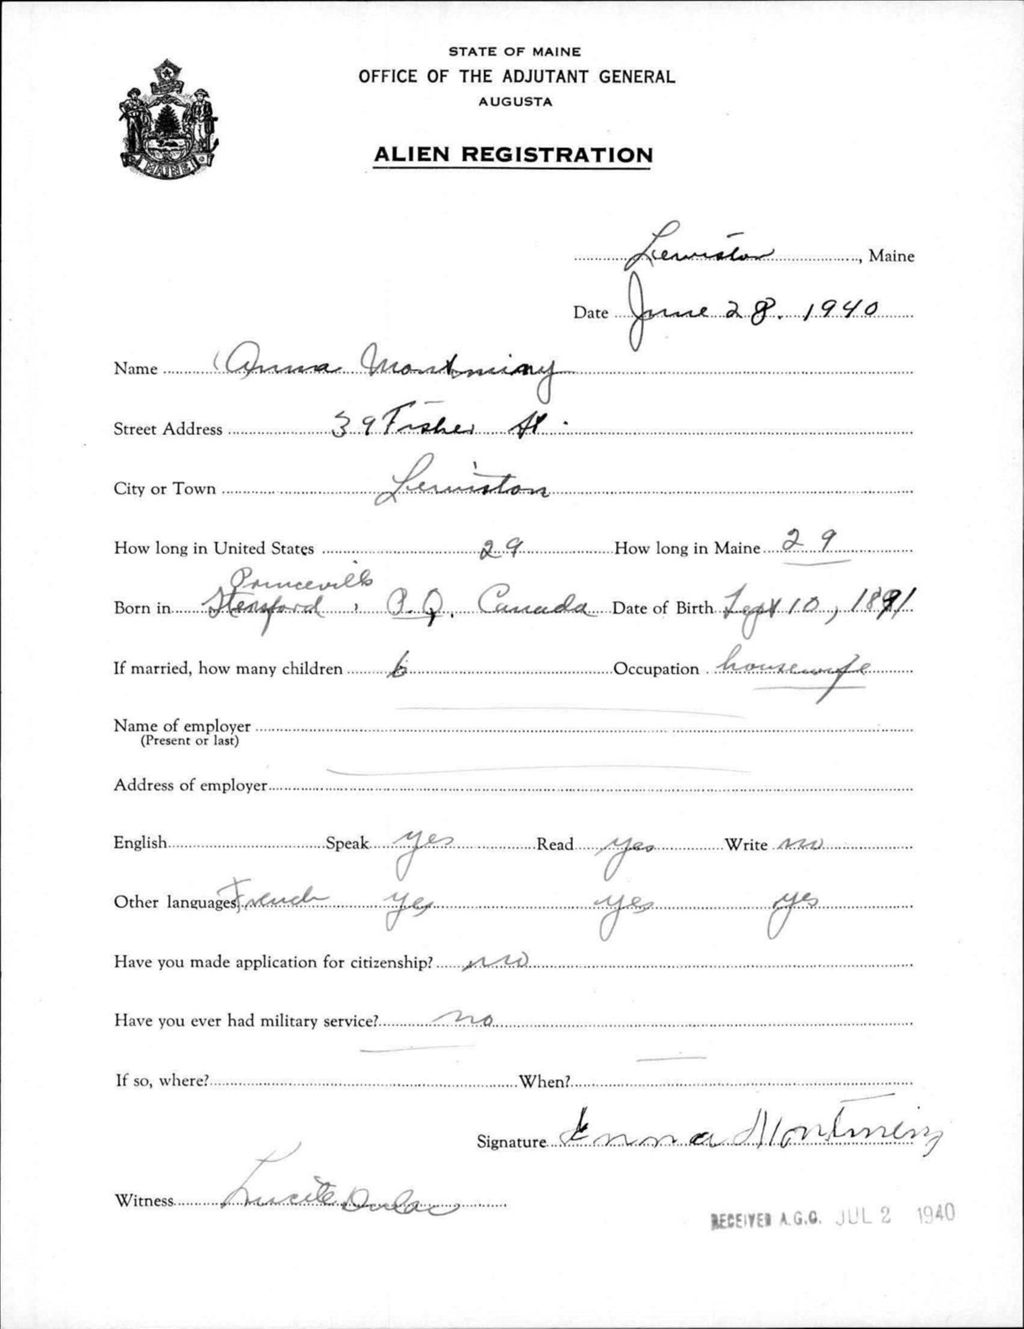 STATE OF MAINE
OFFICE OF THE ADJUTANT GENERAL
AUGUSTA
ALIEN REGISTRATION
MAINE
Lewiston, Maine
Date June 28. 1940
Name Anna Montminy
Street Address 39 Fisher St.
City or Town Lewiston
How long in United States 29 How long in Maine 29
Princeville
Born in Stanford, P.Q. Canada Date of Birth Sept 10, 1891
If married, how many children 6 Occupation housewife
Name of employer
(Present or last)
Address of employer
English Speak yes Read yes Write no
Other languages French yes yes yes
Have you made application for citizenship? no
Have you ever had military service? no
If so, where? When?
Signature Anna Montminy
Witness Lucile Dulac
RECEIVED A.G.O. JUL 2 1940